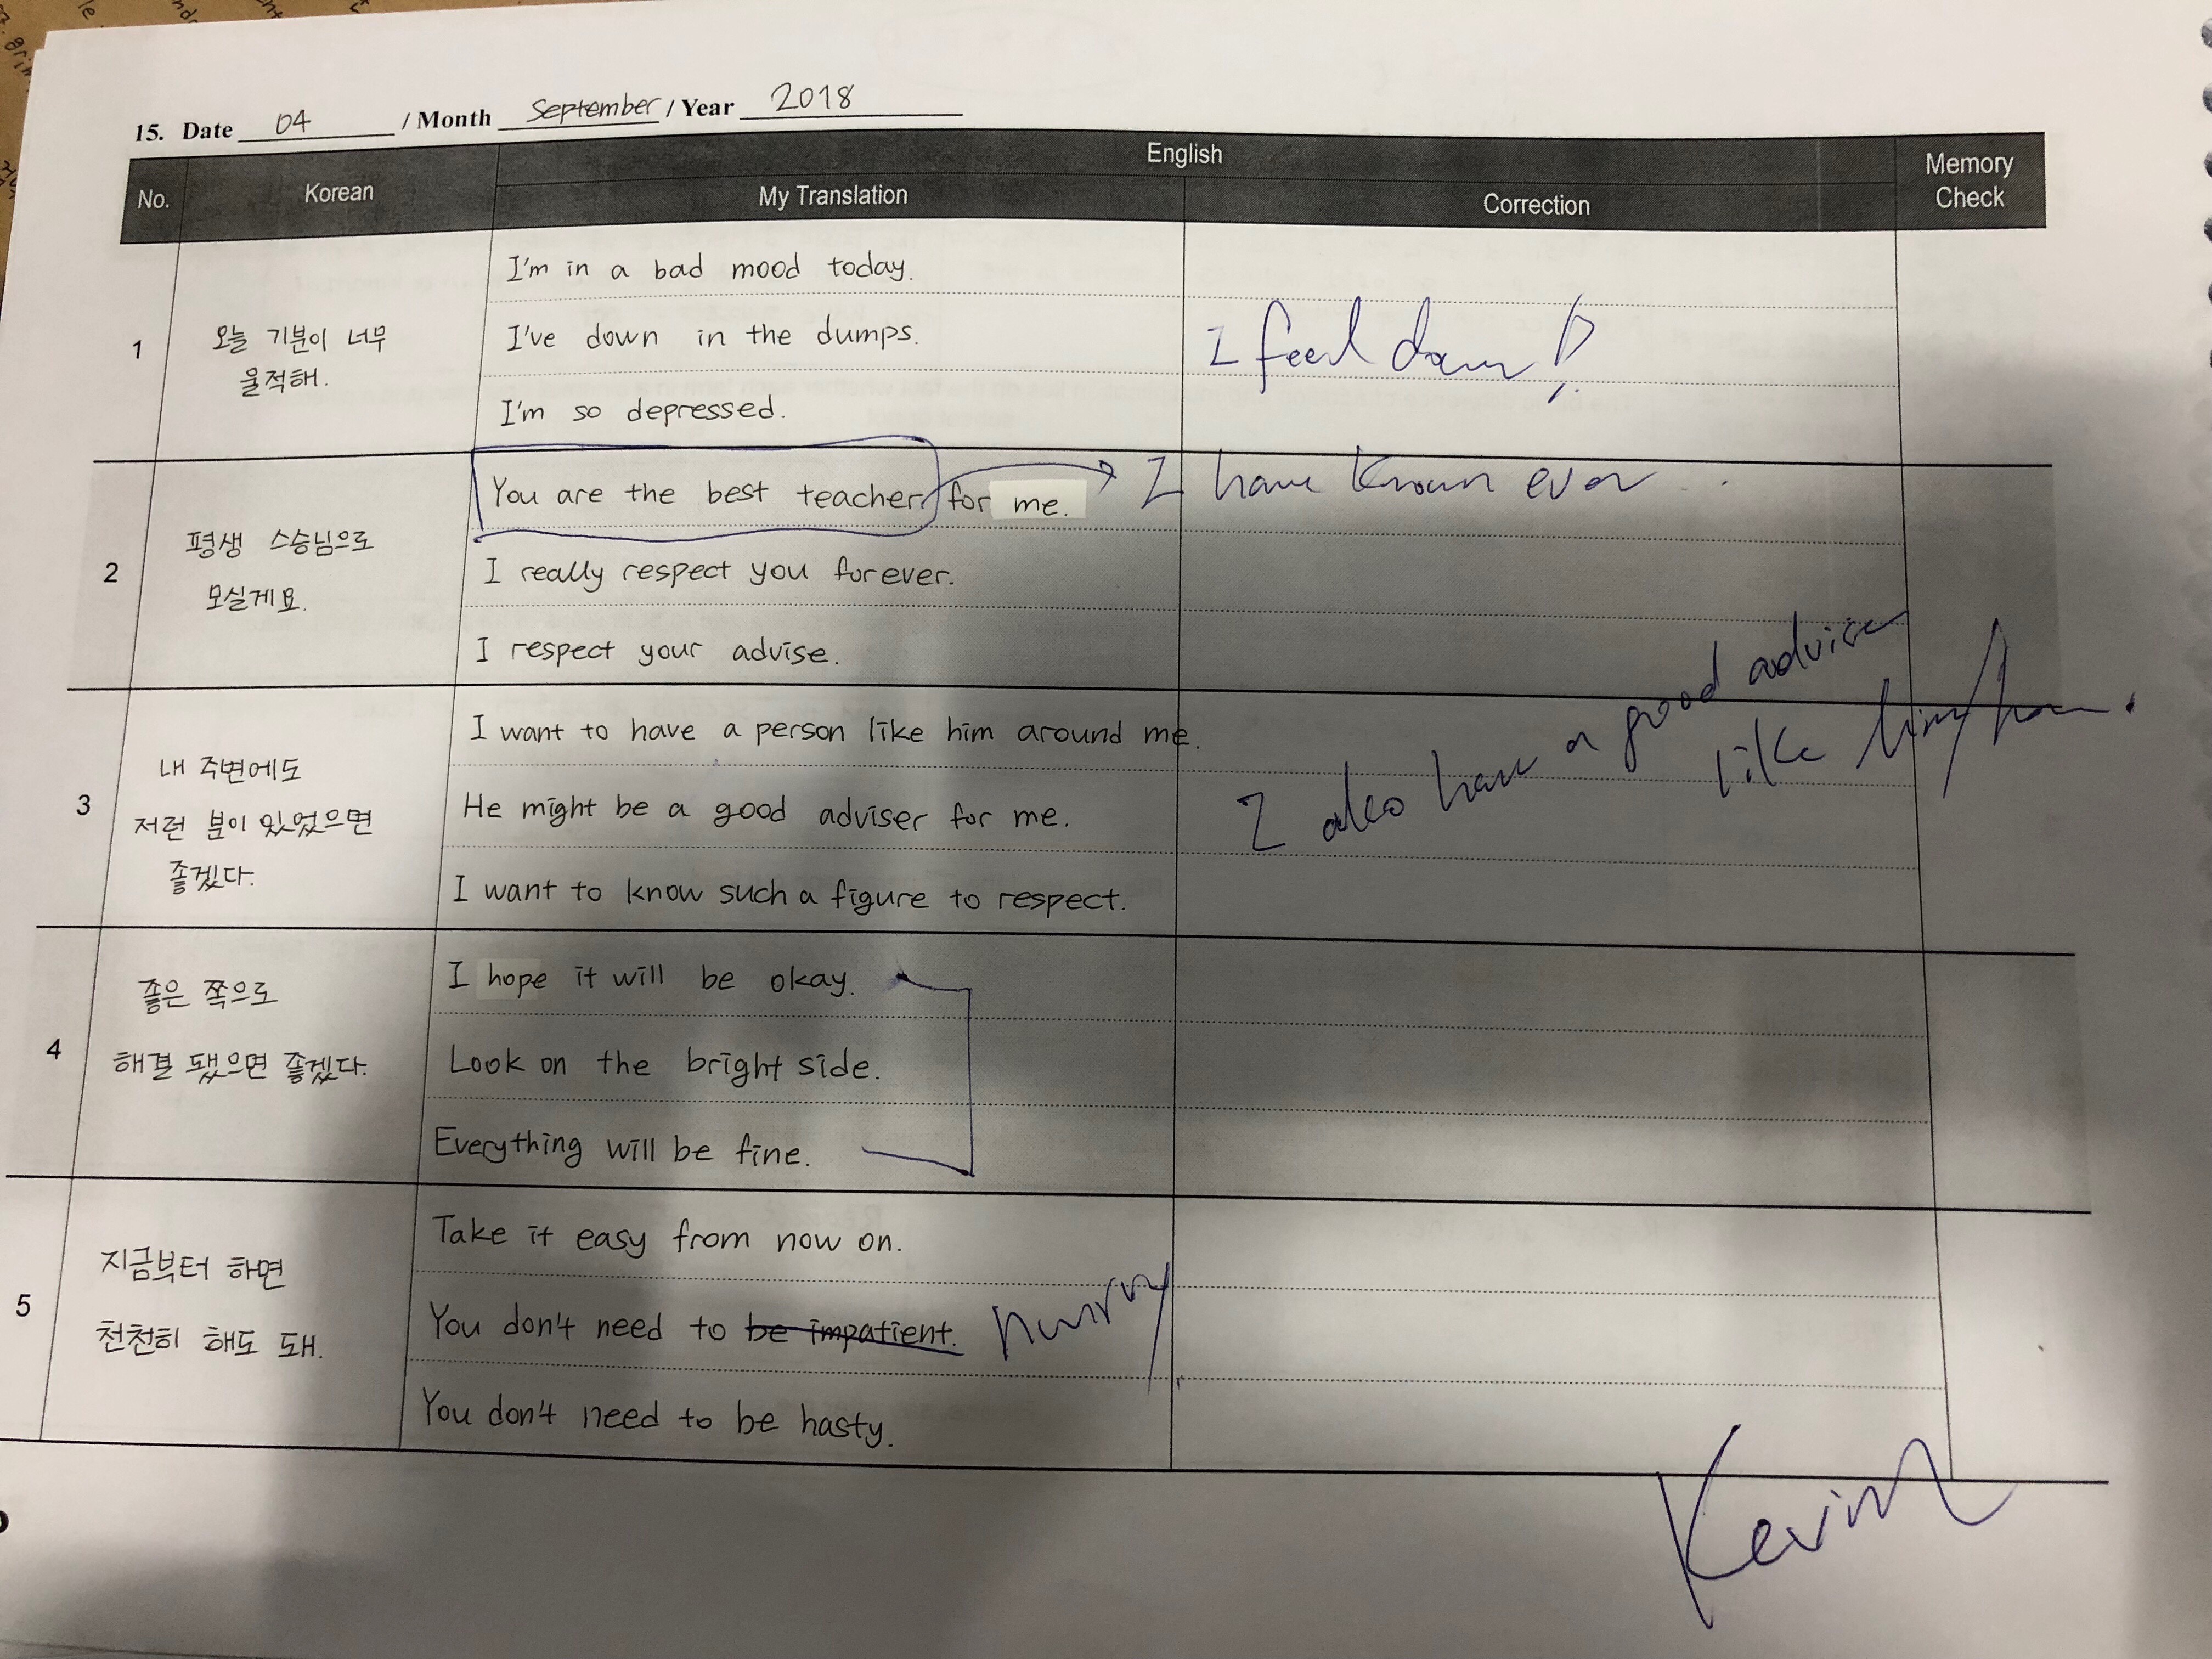 15. Date 04 / Month September / Year 2018
No. Korean English Memory Check
My Translation Correction
1
오늘 기분이 너무
울적해.
I'm in a bad mood today.
I've down in the dumps.
I'm so depressed.
I feel down!
2
평생 스승님으로
모실게요.
You are the best teacher for me.
I have known ever
I really respect you forever.
I respect your advise.
3
내 주변에도
저런 분이 있었으면
좋겠다.
I want to have a person like him around me.
He might be a good adviser for me.
I want to know such a figure to respect.
I also have a good adviser
like him/her.
4
좋은 쪽으로
해결 됐으면 좋겠다.
I hope it will be okay.
Look on the bright side.
Everything will be fine.
5
지금부터 하면
천천히 해도 돼.
Take it easy from now on.
You don't need to be impatient. hurry
You don't need to be hasty.
Kevin